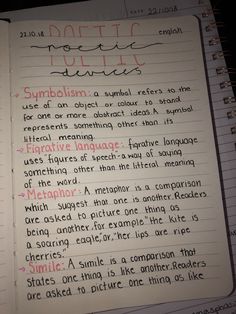 22.10.18
POETIC
english
poetic
POETIC
devices
DATE 22/10/18
→Symbolism: a symbol refers to the
use of an object or colour to stand
for one or more abstract ideas. A symbol
represents something other than its
litteral meaning.
→Figrative language: figrative language
uses "figures of speech-a way of saying
something other than the litteral meaning
of the word.
→Metaphor: A metaphor is a comparison
which suggest that one is another. Readers
are asked to picture one thing as
being another. for example "the kite is
a soaring eagle", or, "her lips are ripe
cherries."
→Simile: A simile is a comparison that
states one thing is like another. Readers
are asked to picture one thing as like